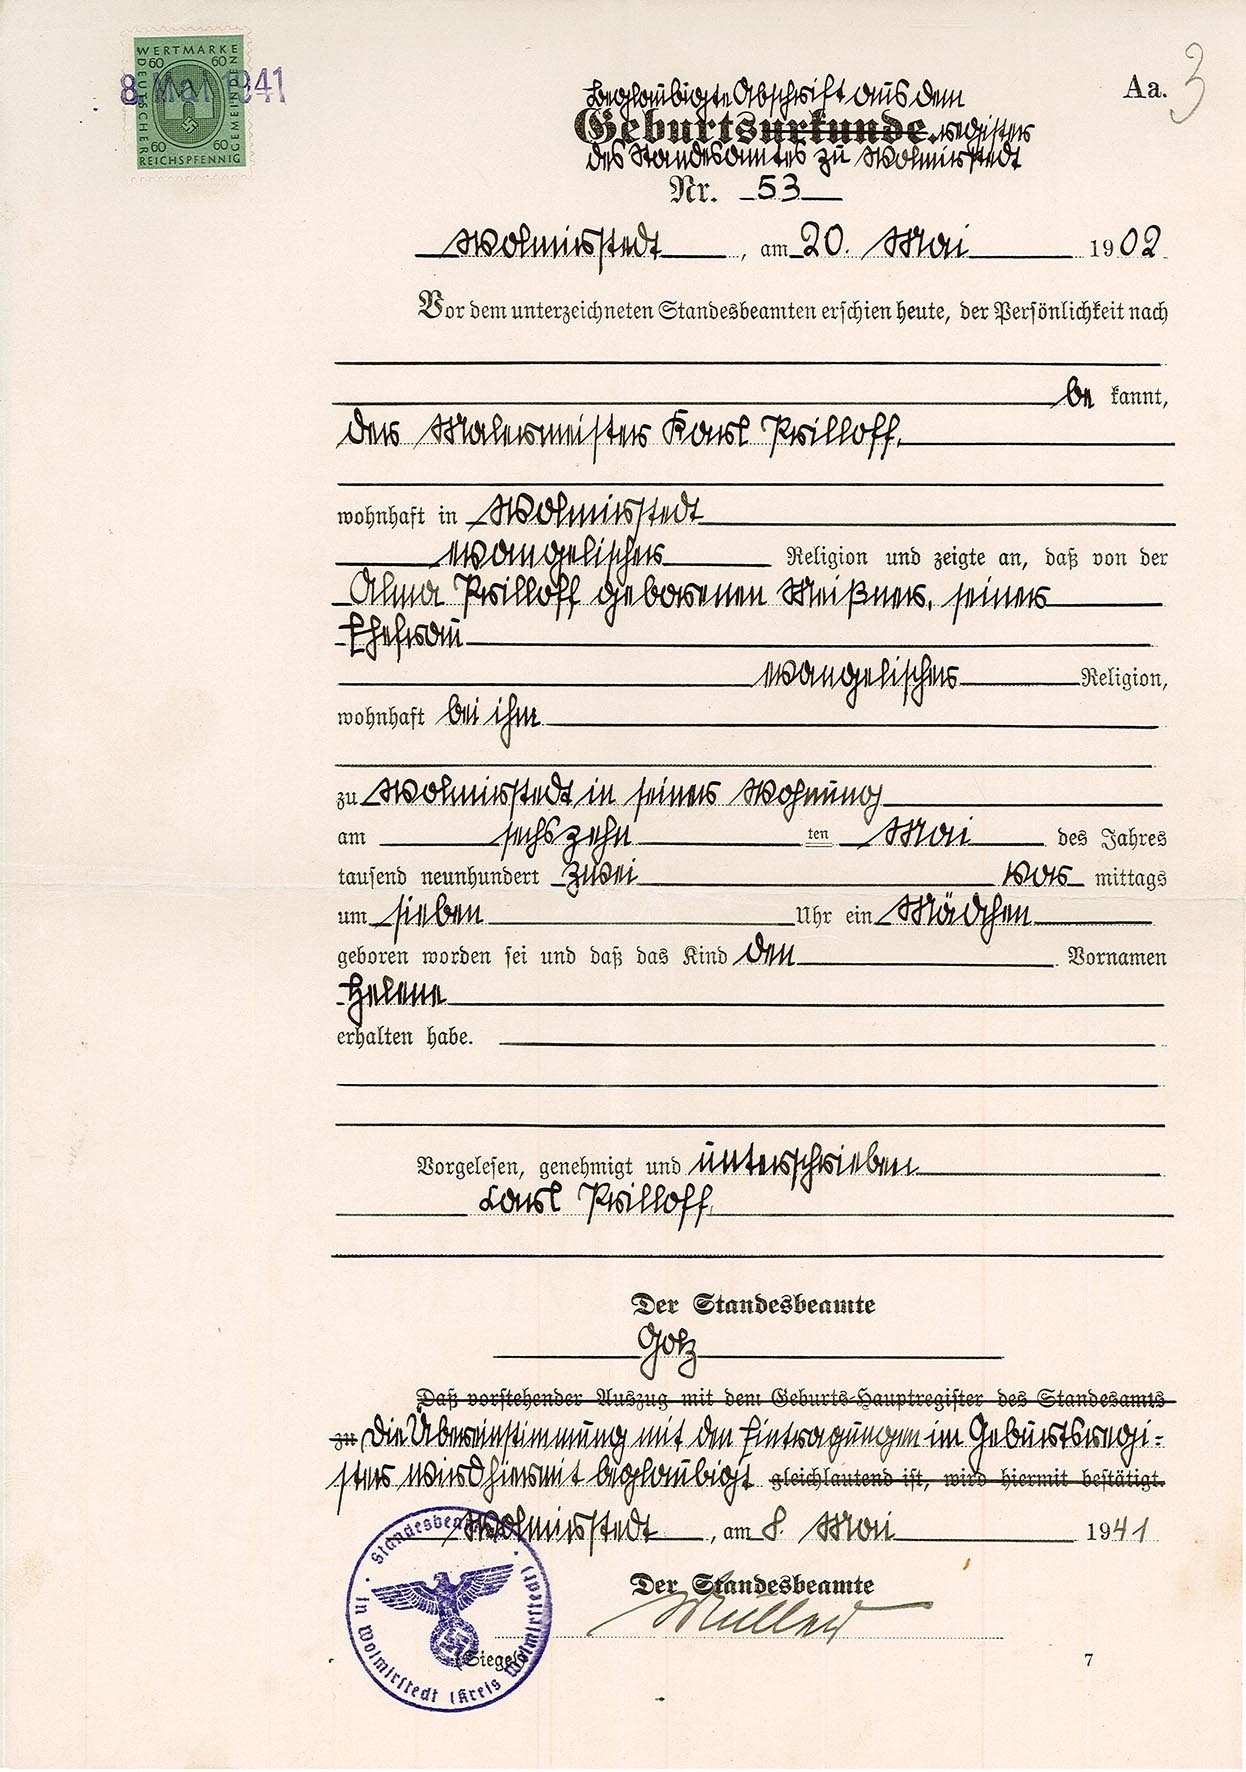 WERTMARKE
DEUTSCHER
GEMEINDEN
60 60
60 60
REICHSPFENNIG
8. Mai 1941
Aa. 3
Beglaubigte Abschrift aus dem
Geburtsurkunde.register
des Standesamtes zu Wolmirstedt
Nr. 53
Wolmirstedt, am 20. Mai 1902
Vor dem unterzeichneten Standesbeamten erschien heute, der Persönlichkeit nach
be kannt,
der Malermeister Karl Prilloff,
wohnhaft in Wolmirstedt
evangelischer Religion und zeigte an, daß von der
Alma Prilloff geborenen Meißner, seiner
Ehefrau
evangelischer Religion,
wohnhaft bei ihm
zu Wolmirstedt in seiner Wohnung
am sechszehn ten Mai des Jahres
tausend neunhundert zwei vor mittags
um sieben Uhr ein Mädchen
geboren worden sei und daß das Kind den Vornamen
Helene
erhalten habe.
Vorgelesen, genehmigt und unterschrieben
Carl Prilloff
Der Standesbeamte
Golz
Daß vorstehender Auszug mit dem Geburts-Hauptregister des Standesamts
zu Die Übereinstimmung mit den Eintragungen im Geburtsregi-
ster wird hiermit beglaubigt gleichlautend ist, wird hiermit bestätigt.
Wolmirstedt, am 8. Mai 1941
Der Standesbeamte
Müller
(Siegel)
Standesbeamter
in Wolmirstedt (Kreis Wolmirstedt)
7